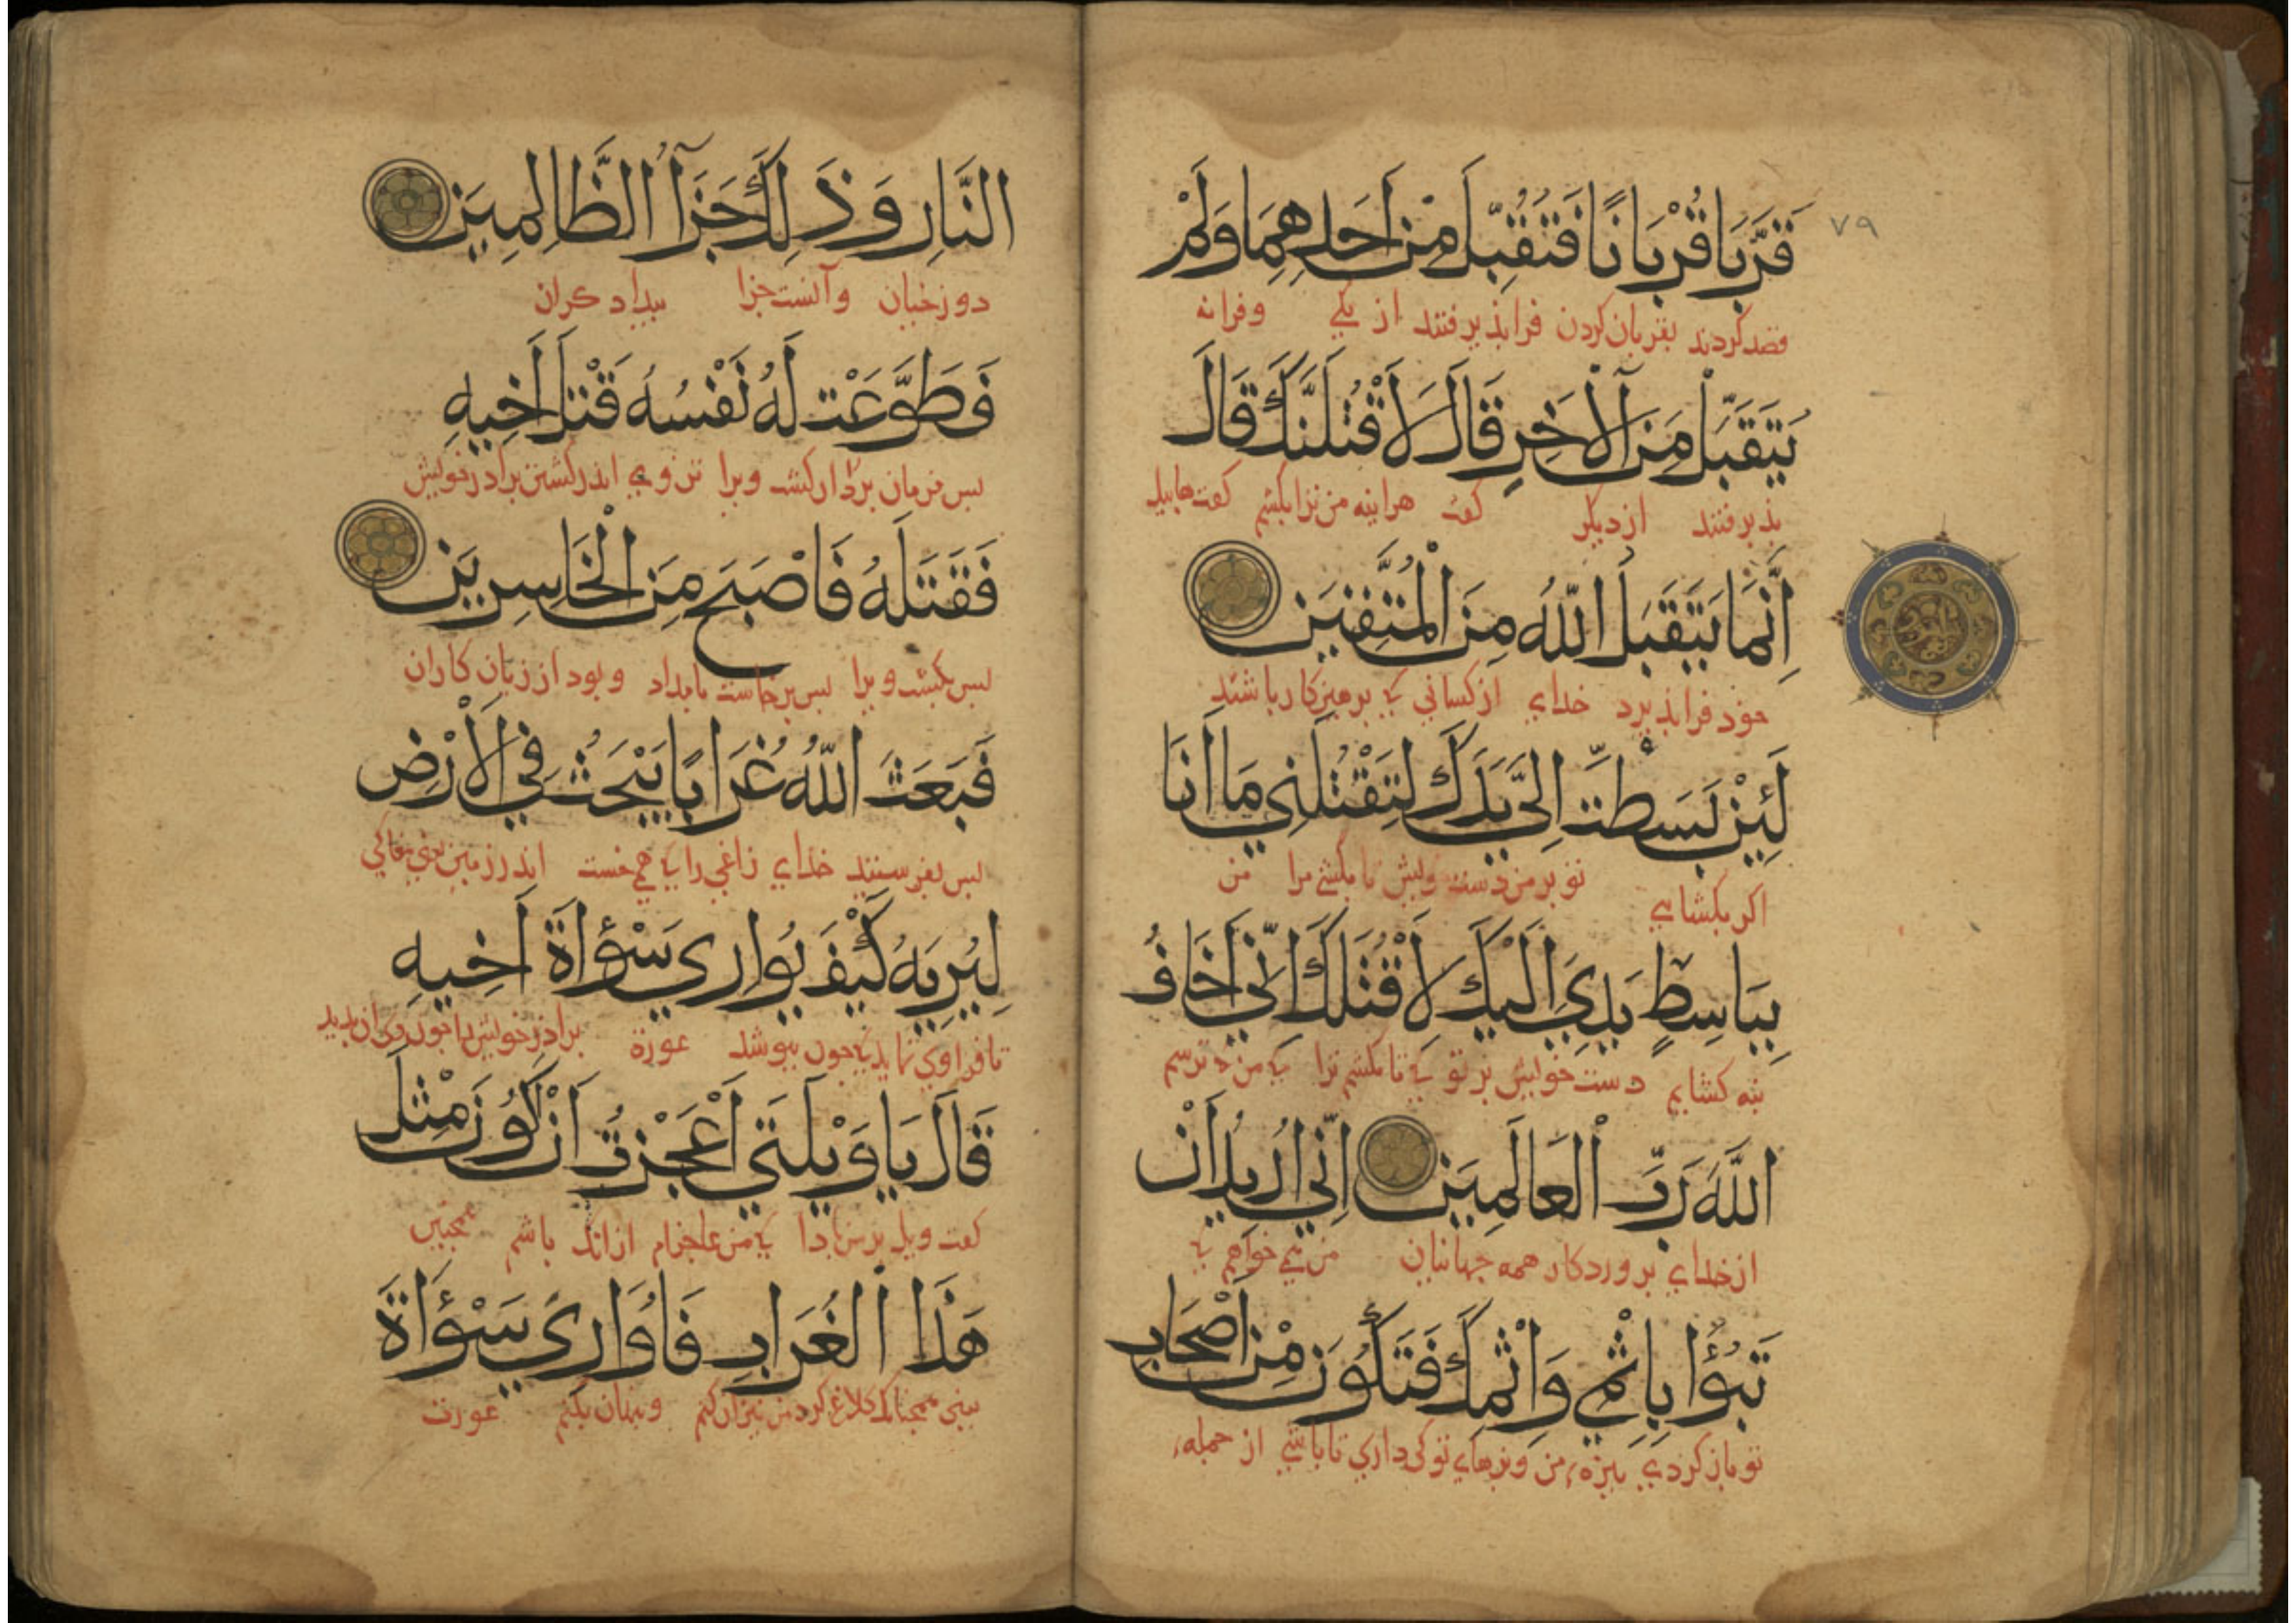 ٧٩
قَرَّبَا قُرْبَانًا فَتُقُبِّلَ مِنْ أَحَدِهِمَا وَلَمْ
قصد کردند بقربان کردن فرا پذیرفتند از یکی وفرا نه
يُتَقَبَّلْ مِنَ الْآخَرِ قَالَ لَأَقْتُلَنَّكَ قَالَ
پذیرفتند از دیگر گفت هراینه من ترا بکشم گفت هابیل
إِنَّمَا يَتَقَبَّلُ اللَّهُ مِنَ الْمُتَّقِينَ
خود فرا پذیرد خدای از کسانی که پرهیزکار باشند
لَئِنْ بَسَطْتَ إِلَيَّ يَدَكَ لِتَقْتُلَنِي مَا أَنَا
اکر بکشایی تو بر من دست خویش تا بکشی مرا من
بِبَاسِطٍ يَدِيَ إِلَيْكَ لِأَقْتُلَكَ إِنِّي أَخَافُ
نه کشایم دست خویش بر تو که تا بکشم ترا که من ترسم
اللَّهَ رَبَّ الْعَالَمِينَ إِنِّي أُرِيدُ أَنْ
از خدای پروردکار همه جهانیان من می خواهم که
تَبُوءَا بِإِثْمِي وَإِثْمِكَ فَتَكُونَ مِنْ أَصْحَابِ
تو باز کردی بزه من وبزهای تو کی داری تا باشی از جمله
النَّارِ وَذَلِكَ جَزَاءُ الظَّالِمِينَ
دوزخیان وآنست جزا بیدادکران
فَطَوَّعَتْ لَهُ نَفْسُهُ قَتْلَ أَخِيهِ
پس فرمان بردار کشت ویرا تن وی اندر کشتن برادر خویش
فَقَتَلَهُ فَأَصْبَحَ مِنَ الْخَاسِرِينَ
پس بکشت ویرا پس برخاست بامداد وبود از زیان کاران
فَبَعَثَ اللَّهُ غُرَابًا يَبْحَثُ فِي الْأَرْضِ
پس بفرستید خدای زاغی را که همی خست اندر زمین
لِيُرِيَهُ كَيْفَ يُوَارِي سَوْءَاةَ أَخِيهِ
تا فرا وی نماید که چون بپوشد عورة برادر خویش را چون
قَالَ يَا وَيْلَتَى أَعَجَزْتُ أَنْ أَكُونَ مِثْلَ
گفت ویل بر من بادا که من عاجزام از انک باشم همچنین
هَذَا الْغُرَابِ فَأُوَارِيَ سَوْءَاةَ
کلاغ کرد من نیز آن کنم وپنهان بکنم عورت